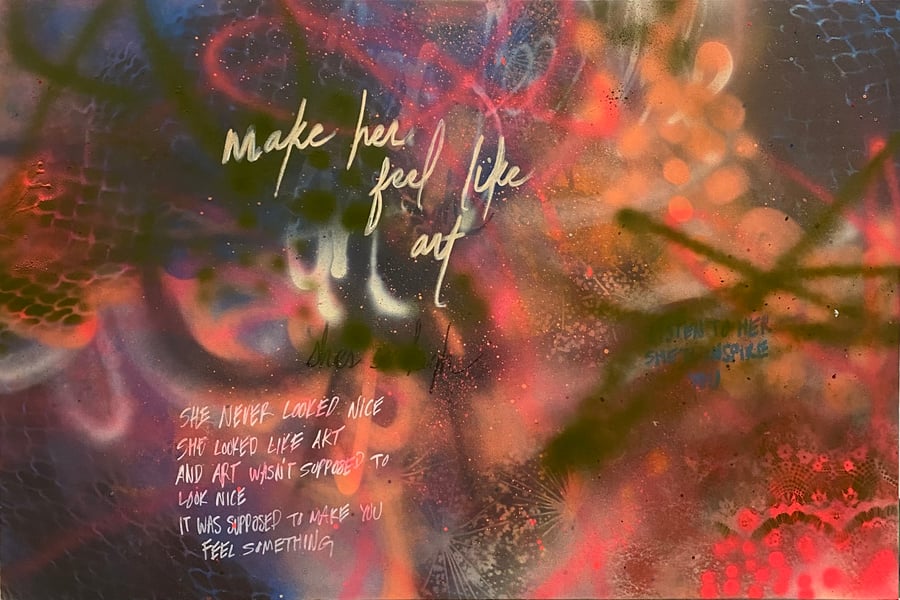 make her
feel like
art
SHE NEVER LOOKED NICE
SHE LOOKED LIKE ART
AND ART WASN'T SUPPOSED TO
LOOK NICE
IT WAS SUPPOSED TO MAKE YOU
FEEL SOMETHING
LISTEN TO HER